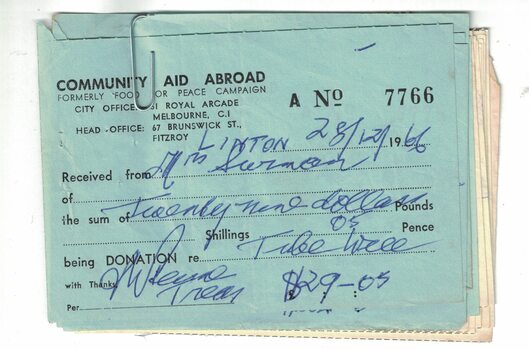 COMMUNITY AID ABROAD
FORMERLY FOOD FOR PEACE CAMPAIGN
CITY OFFICE: 31 ROYAL ARCADE
MELBOURNE, C.1
HEAD OFFICE: 67 BRUNSWICK ST.,
FITZROY
A No 7766
LINTON 28/12/1966
Received from Mrs Surman
of
the sum of Twenty nine dollars Pounds
Shillings 05 Pence
being DONATION re Tube Well
with Thanks
Treas $29-05
Per